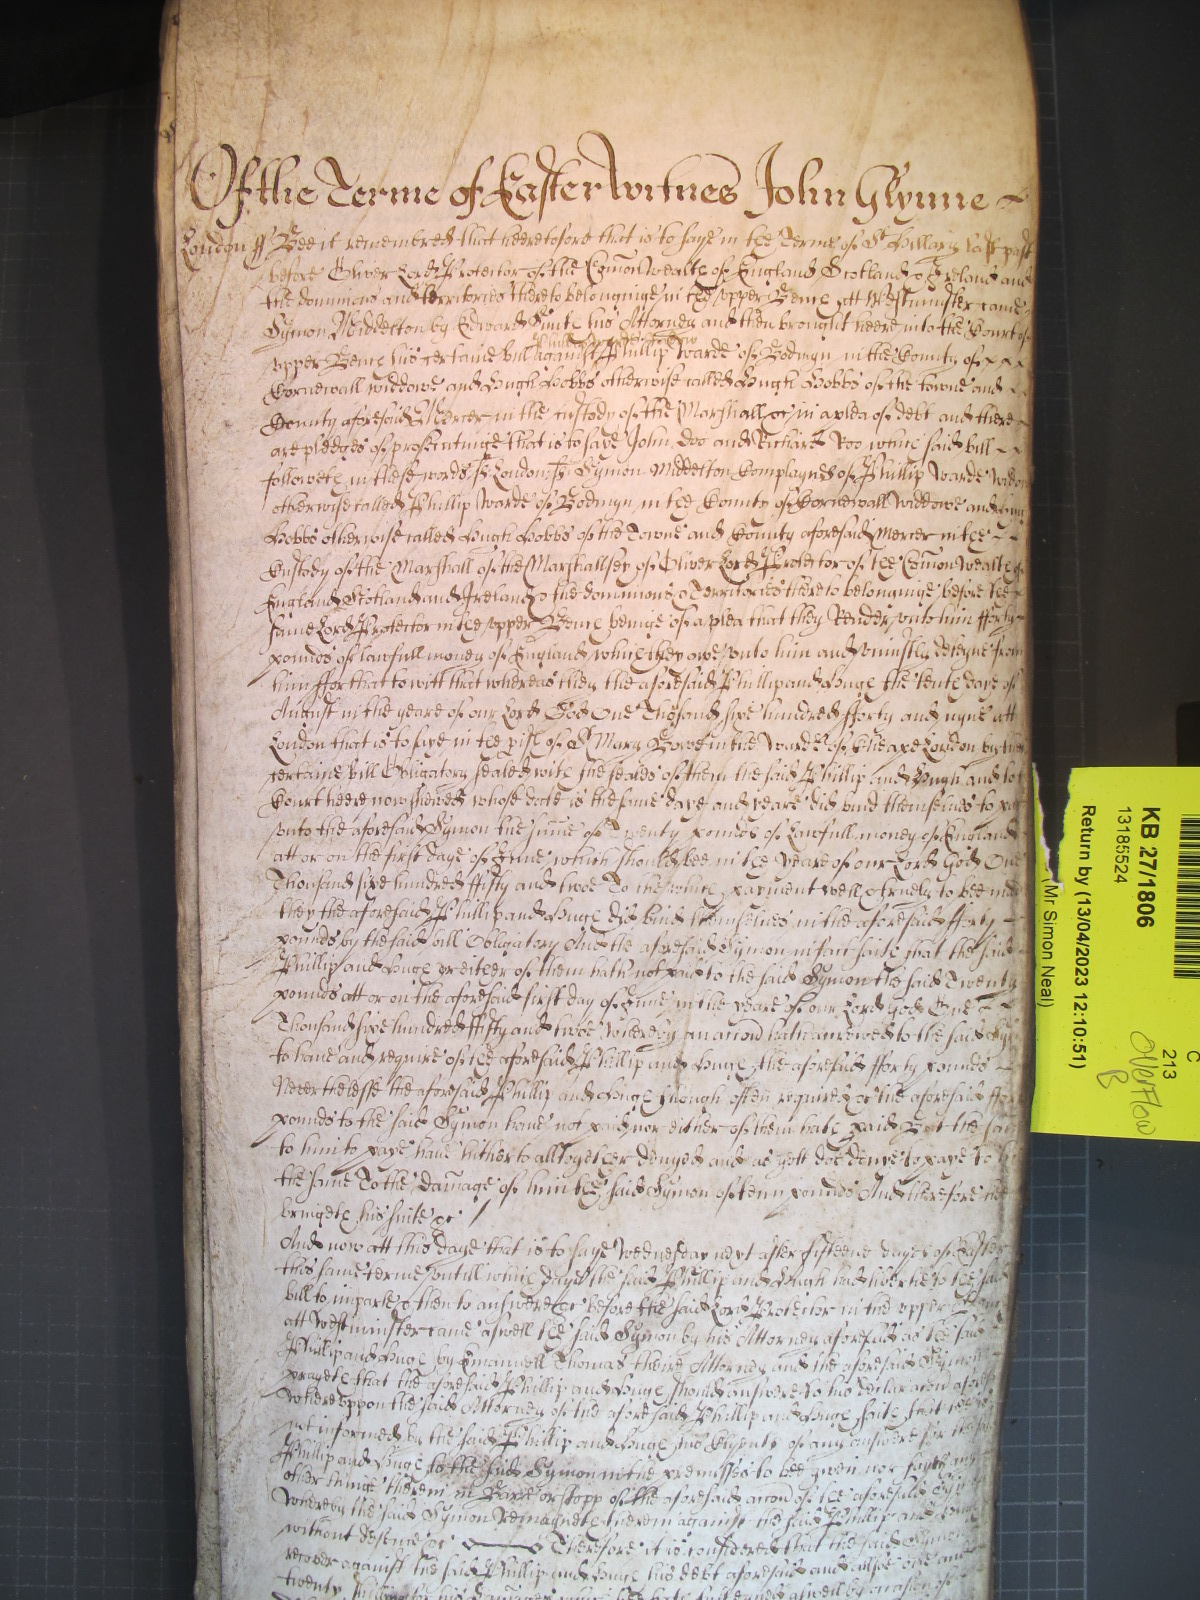 Of the Terme of Easter Witnes John Glynne
London ss Bee it remembred that heretofore that is to saye in the Terme of St Hillary last past
before Oliver Lord Protector of the Comon Wealth of England Scotland & Ireland and
the dominions and territories thereto belonginge in the upper Bench att Westminster came
Symon Middelton by Edward his Attorney and then brought heere into the Court of
upper Bench his certaine bill against Phillip Warde of Bodmyn in the County of
Cornewall widdowe and Hugh Hobbs otherwise called Hugh Hobbs of the towne and
County aforesaid Mercer in the custody of the Marshall &c in a plea of debt and there
are pledges of prosecutinge that is to saye John Doo and Richard Roo which said bill
followeth in these words ss London ss Symon Middelton Complayneth of Phillip Warde widow
otherwise called Phillip Warde of Bodmyn in the County of Cornewall Widdowe and Hugh
Hobbs otherwise called Hugh Hobbs of the Towne and County aforesaid Mercer in the
Custody of the Marshall of the Marshallsey of Oliver Lord Protector of the Comon Wealth of
England Scotland and Ireland & the dominions & Territories thereto belonginge before the
same Lord Protector in the upper Bench beinge of a plea that they Render unto him fforty
pounds of lawfull money of England which they owe unto him and uniustly deteyne from
him ffor that to witt that whereas they the aforesaid Phillip and Hugh the tenth daye of
August in the yeare of our Lord God One Thousand sixe hundred fforty and nyne att
London that is to saye in the pish of St Mary Bowe in the Warde of Cheape London by their
certaine bill Obligatory sealed with the seales of them the said Phillip and Hugh and to the
Court heere now shewed whose date is the same daye and yeare did bind themselves to pay
unto the aforesaid Symon the summe of Twenty pounds of Lawfull money of England
att or on the first daye of June which should bee in the yeare of our Lord God One
Thousand sixe hundred ffifty and twoe To the which payment well & truely to bee made
they the aforesaid Phillip and Hugh did bind themselves in the aforesaid fforty
pounds by the said bill Obligatory And the aforesaid Symon in fact saith that the said
Phillip and Hugh or either of them hath not paid to the said Symon the said Twenty
pounds att or on the aforesaid first day of June in the yeare of our Lord God One
Thousand sixe hundred ffifty and twoe whereby an accon hath accrewed to the said Symon
to have and require of the aforesaid Phillip and Hugh the aforesaid fforty pounds
Neverthelesse the aforesaid Phillip and Hugh though often required &c the aforesaid fforty
pounds to the said Symon have not paid nor either of them hath paid But the same
to him to paye have hitherto alltogether denyed and as yett doe denye to paye to him
the same To the damage of him the said Symon of tenn pounds And therefore hee
bringeth his suite &c
And now att this daye that is to saye Wednesday next after fifteene dayes of Easter
this same terme untill which daye the said Phillip and Hugh had libertie to the said
bill to imparle & then to answere &c before the said Lord Protector in the upper Bench
att Westminster came aswell the said Symon by his Attorney aforesaid as the said
Phillip and Hugh by Emanuell Thomas theire Attorney and the aforesaid Symon
prayeth that the aforesaid Phillip and Hugh should answere to his declaracon aforesaid
Whereuppon the said Attorney of the aforesaid Phillip and Hugh saith that hee is
not informed by the said Phillip and Hugh his Clyents of any answere for the said
Phillip and Hugh to the said Symon in the premisses to bee given nor sayeth any
other thinge therein in Barr or stopp of the aforesaid accon of the aforesaid Symon
Whereby the said Symon Remayneth therein against the said Phillip and Hugh
without defence &c Therefore it is considered that the said Symon
recover against the said Phillip and Hugh his debt aforesaid and
twenty
KB 27/1806
13185524
Return by (13/04/2023 12:10:51)
Mr Simon Neal)
C
213
Overflow
B